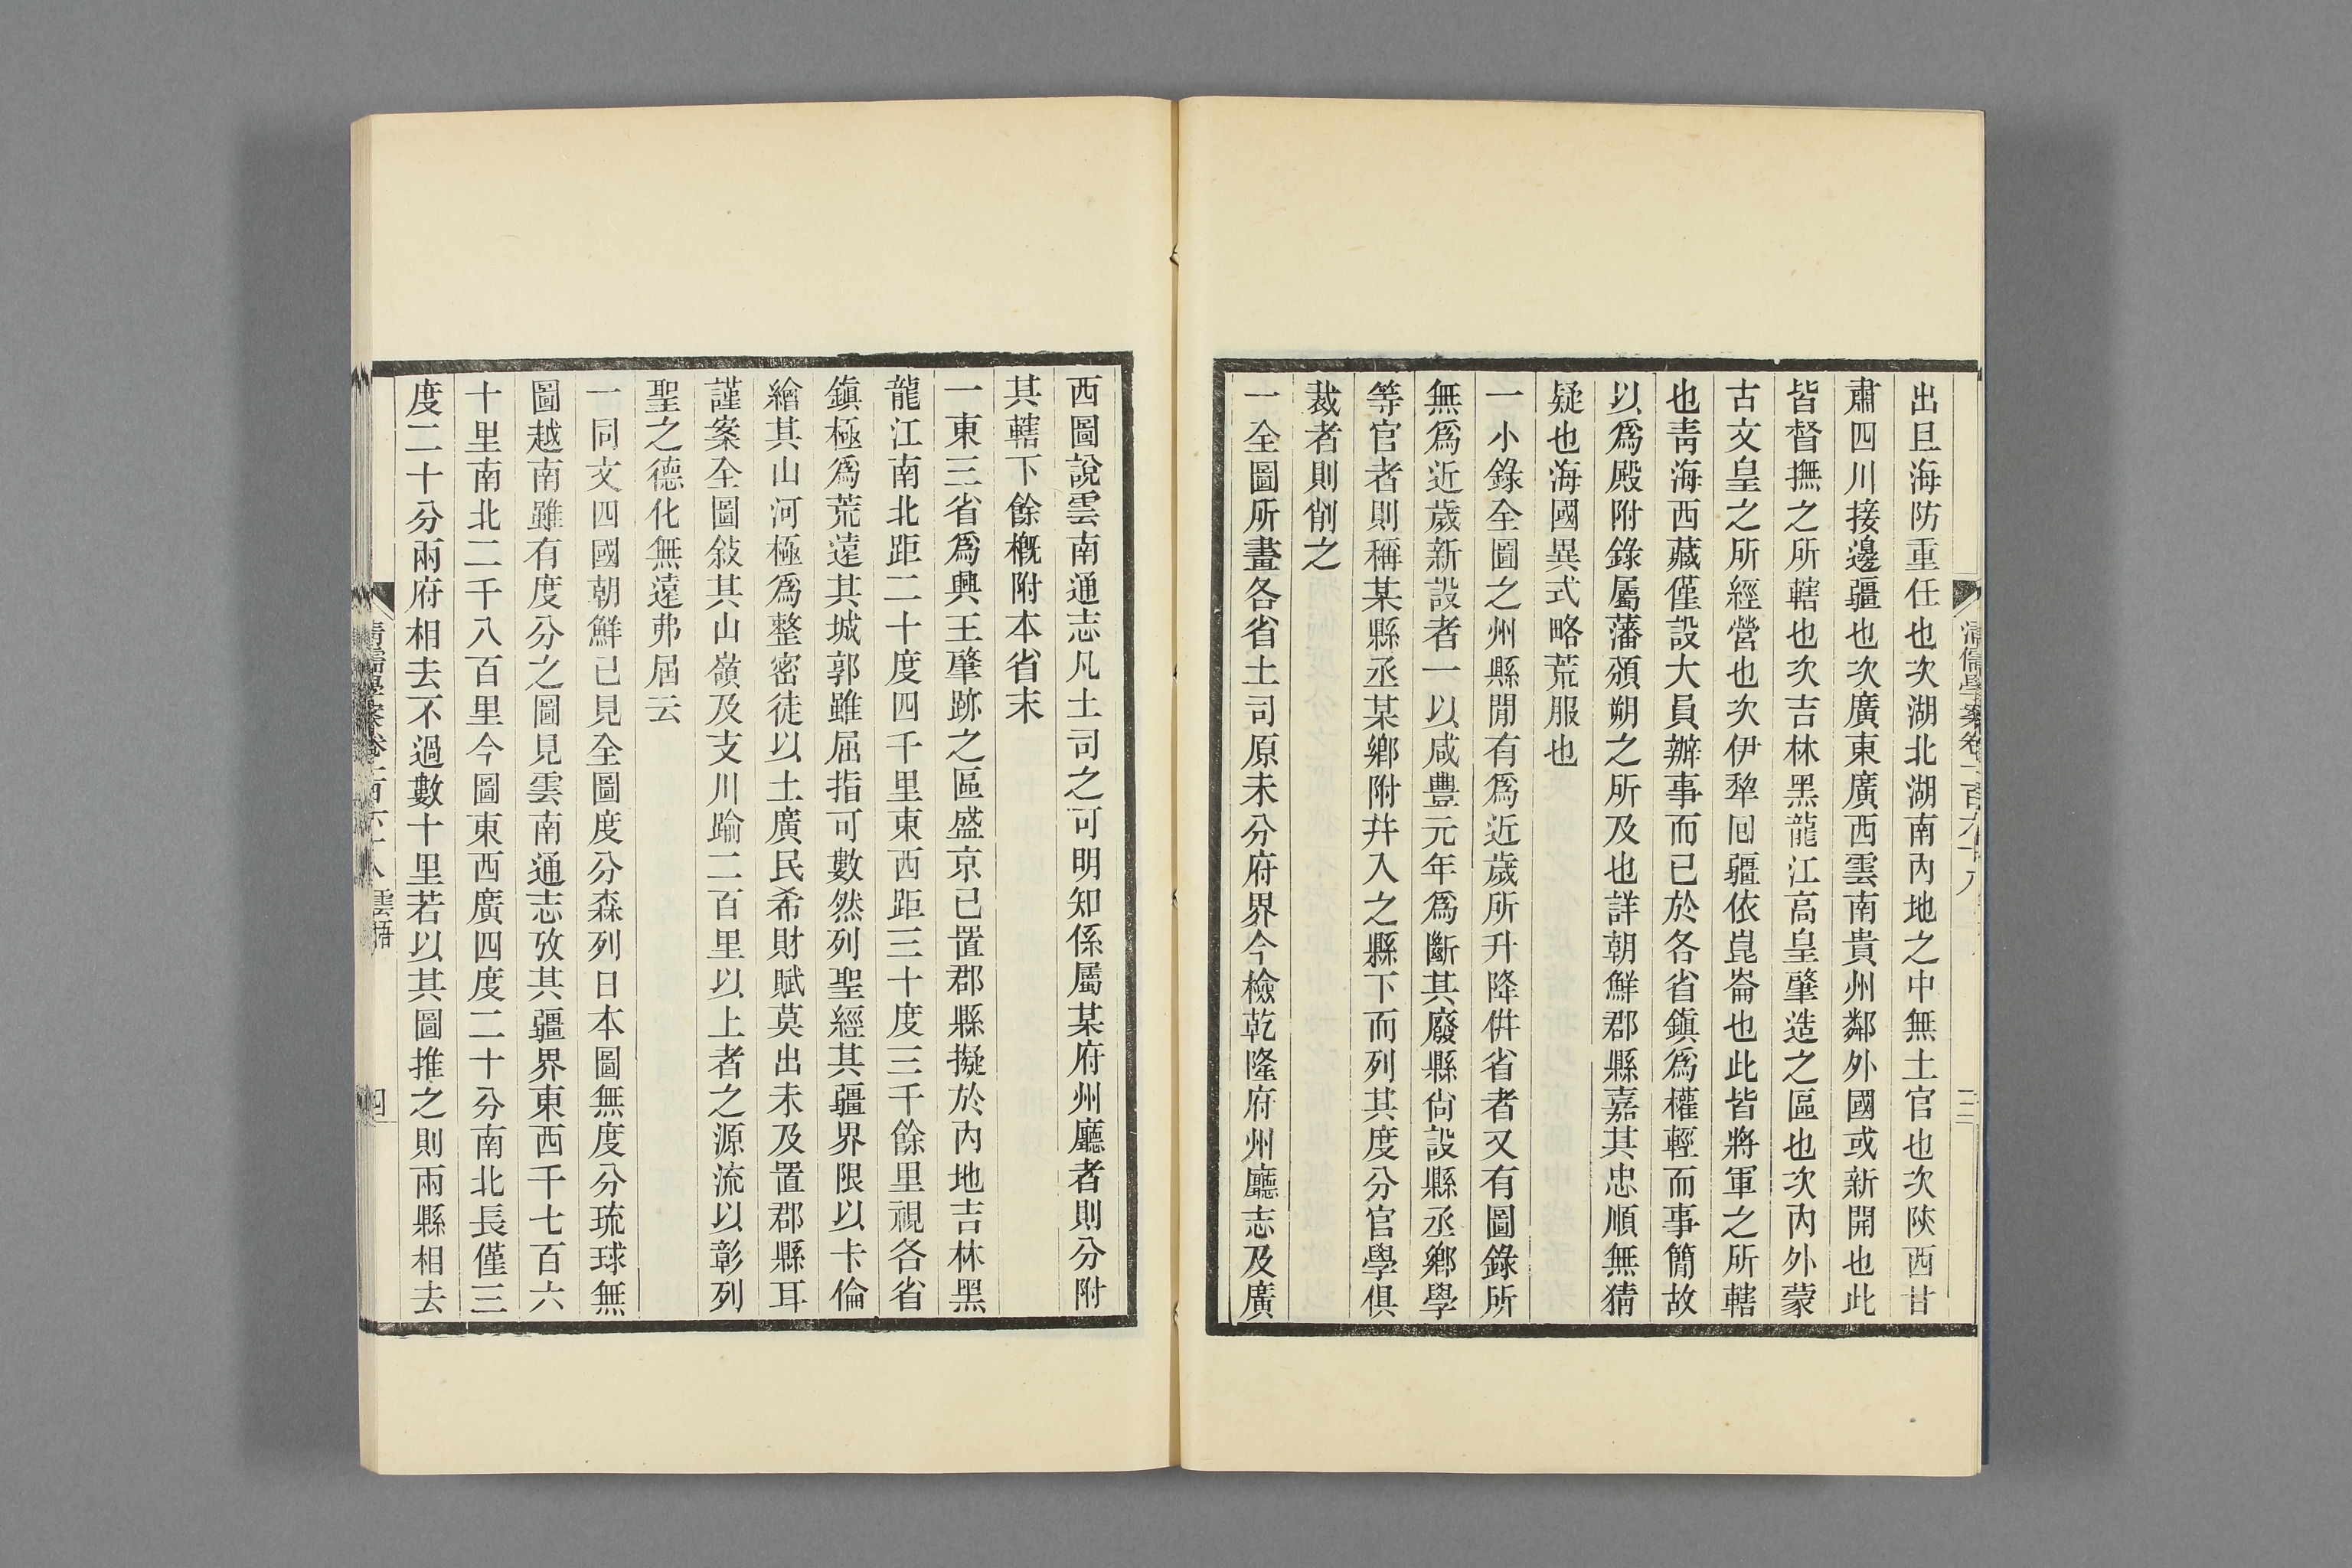 出且海防重任也次湖北湖南內地之中無土官也次陝西甘
肅四川接邊疆也次廣東廣西雲南貴州鄰外國或新開也此
皆督撫之所轄也次吉林黑龍江高皇肇造之區也次內外蒙
古文皇之所經營也次伊犂回疆依崑崙也此皆將軍之所轄
也靑海西藏僅設大員辦事而已於各省鎭爲權輕而事簡故
以爲殿附錄屬藩頒朔之所及也詳朝鮮郡縣嘉其忠順無猜
疑也海國異式略荒服也
一小錄全圖之州縣閒有爲近歲所升降倂省者又有圖錄所
無爲近歲新設者一以咸豐元年爲斷其廢縣尙設縣丞鄕學
等官者則稱某縣丞某鄕附幷入之縣下而列其度分官學俱
裁者則削之
一全圖所畫各省土司原未分府界今檢乾隆府州廳志及廣
西圖說雲南通志凡土司之可明知係屬某府州廳者則分附
其轄下餘槪附本省末
一東三省爲興王肇跡之區盛京已置郡縣擬於內地吉林黑
龍江南北距二十度四千里東西距三十度三千餘里視各省
鎭極爲荒遠其城郭雖屈指可數然列聖經其疆界限以卡倫
繪其山河極爲整密徒以土廣民希財賦莫出未及置郡縣耳
謹案全圖敍其山嶺及支川踰二百里以上者之源流以彰列
聖之德化無遠弗屆云
一同文四國朝鮮已見全圖度分森列日本圖無度分琉球無
圖越南雖有度分之圖見雲南通志攷其疆界東西千七百六
十里南北二千八百里今圖東西廣四度二十分南北長僅三
度二十分兩府相去不過數十里若以其圖推之則兩縣相去